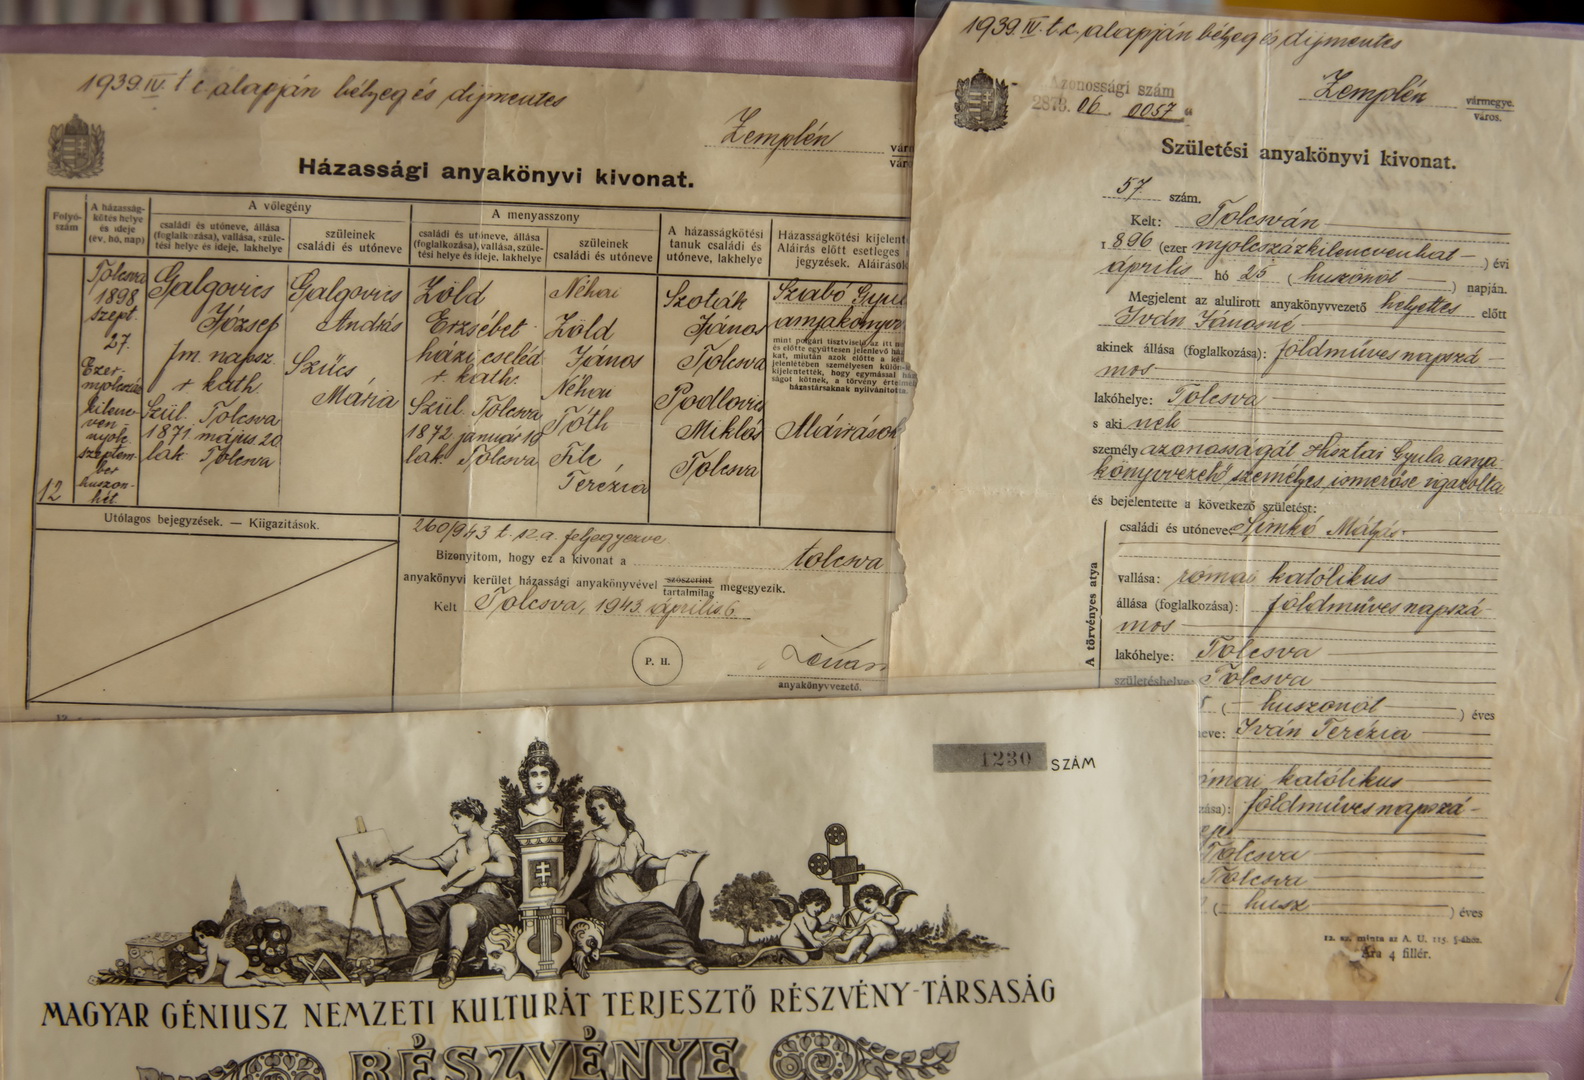 1939. IV. t. c. alapján bélyeg és díjmentes
Zemplén
Házassági anyakönyvi kivonat.
Folyó-
szám
A házasság-
kötés helye
és ideje
(év, hó, nap)
A vőlegény
családi és utóneve, állása
(foglalkozása), vallása, szüle-
tési helye és ideje, lakhelye
szüleinek
családi és utóneve
A menyasszony
családi és utóneve, állása
(foglalkozása), vallása, szüle-
tési helye és ideje, lakhelye
szüleinek
családi és utóneve
A házasságkötési
tanuk családi és
utóneve, lakhelye
Házasságkötési kijelent
Aláírás előtt esetleges
jegyzések. Aláírások
12
Tolcsva
1898
szept.
27.
Ezer-
nyolcszáz
kilenc-
ven-
nyolc
szeptem-
ber
huszon-
hét
Galgovics
József
fm. napsz.
r. kath.
Szül. Tolcsva
1871 május 20
lak. Tolcsva
Galgovics
András
Szűcs
Mária
Zöld
Erzsébet
házi cseléd
r. kath.
Szül. Tolcsva
1872 január 19
lak. Tolcsva
Néhai
Zöld
János
Néhai
Tóth
Terézia
János
Tolcsva
Podlovics
Miklós
Tolcsva
Szabó Gyu
anyakönyv
mint polgári tisztviselő az itt
és előtte együttesen jelenlevő
kat, miután azok előtte a
jelenlétében személyesen külön
kijelentették, hogy egymással
ságot kötnek, a törvény értel
házastársaknak nyilvánította.
Aláírások
Utólagos bejegyzések. — Kiigazitások.
260/943 t. sz. a. feljegyezve.
Bizonyitom, hogy ez a kivonat a tolcsva
anyakönyvi kerület házassági anyakönyvével szószerint
tartalmilag megegyezik.
Kelt Tolcsva, 1943. április 6.
P. H.
anyakönyvvezető.
1939. IV. t. c. alapján bélyeg és díjmentes
Azonossági szám
2878. 06. 0057
Zemplén vármegye.
város.
Születési anyakönyvi kivonat.
57 szám.
Kelt: Tolcsván
1896 (ezer nyolcszázkilencvenhat) évi
április hó 25 (huszonöt) napján.
Megjelent az alulirott anyakönyvvezető helyettes előtt
Iván Jánosné
akinek állása (foglalkozása): földmüves napszá-
mos
lakóhelye: Tolcsva
s aki nek
személy azonosságát Gyula anya-
könyvvezető személyes ismerőse igazolta
és bejelentette a következő születést:
A törvényes atya
családi és utóneve: Simkó Mátyás
vallása: római katólikus
állása (foglalkozása): földmüves napszá-
mos
lakóhelye: Tolcsva
születéshelye: Tolcsva
(huszonöt) éves
neve: Iván Terézia
római katólikus
földmüves napszá-
Tolcsva
Tolcsva
(husz) éves
12. sz. minta az A. U. 115. §-ához.
Ára 4 fillér.
1230 SZÁM
MAGYAR GÉNIUSZ NEMZETI KULTURÁT TERJESZTŐ RÉSZVÉNY-TÁRSASÁG
RÉSZVÉNYE